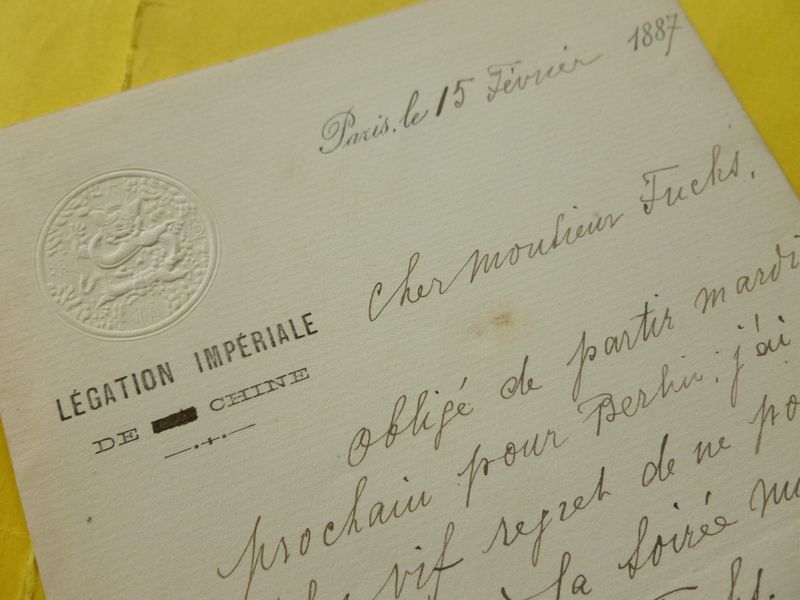 Paris, le 15 Février 1887
LÉGATION IMPÉRIALE
DE CHINE
Cher Monsieur Fuchs,
Obligé de partir mardi
prochain pour Berlin, j'ai
vif regret de ne
la soirée